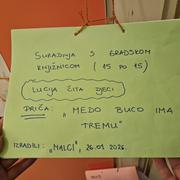 SURADNJA S GRADSKOM
KNJIŽNICOM (15 PO 15)
LUCIJA ČITA DJECI
PRIČA: „MEDO BUCO IMA
TREMU"
IZRADILI: „MALCI", 26.01.2026.